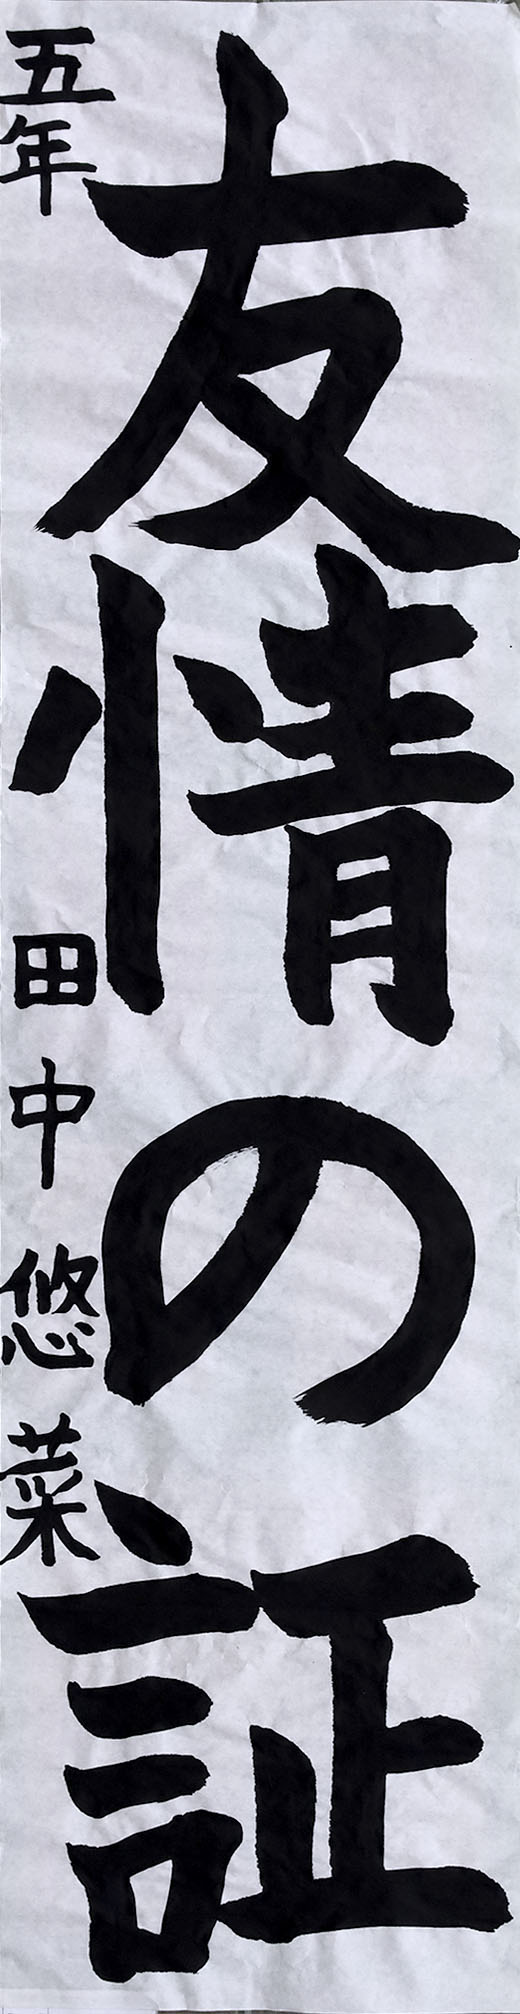 友情の証
五年 田中悠菜